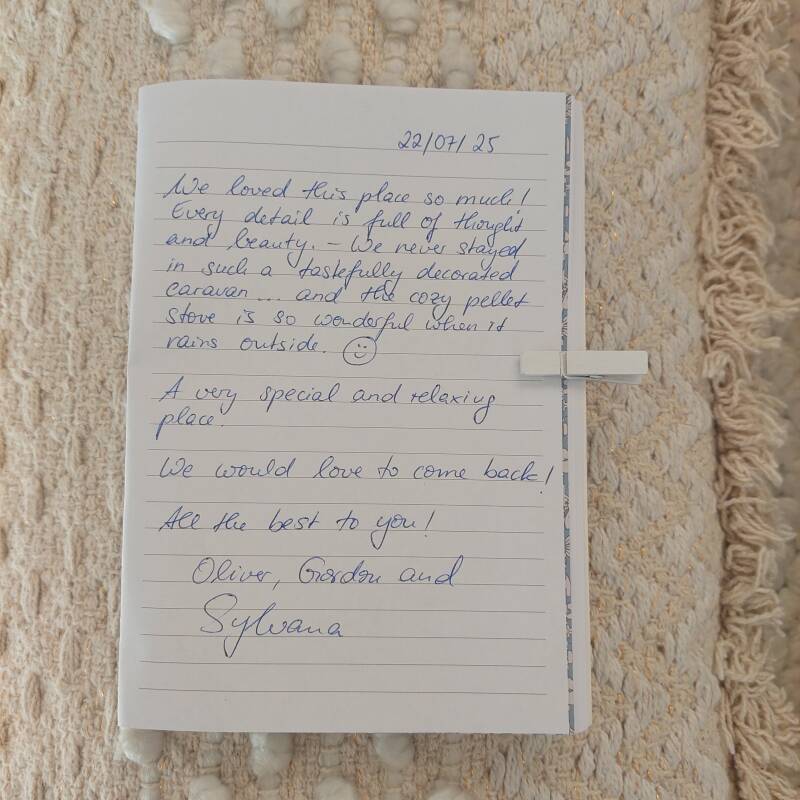 22/07/25
We loved this place so much!
Every detail is full of thought
and beauty. – We never stayed
in such a tastefully decorated
caravan ... and the cozy pellet
stove is so wonderful when it
rains outside. ☺
A very special and relaxing
place.
We would love to come back!
All the best to you!
Oliver, Gordon and
Sylvana